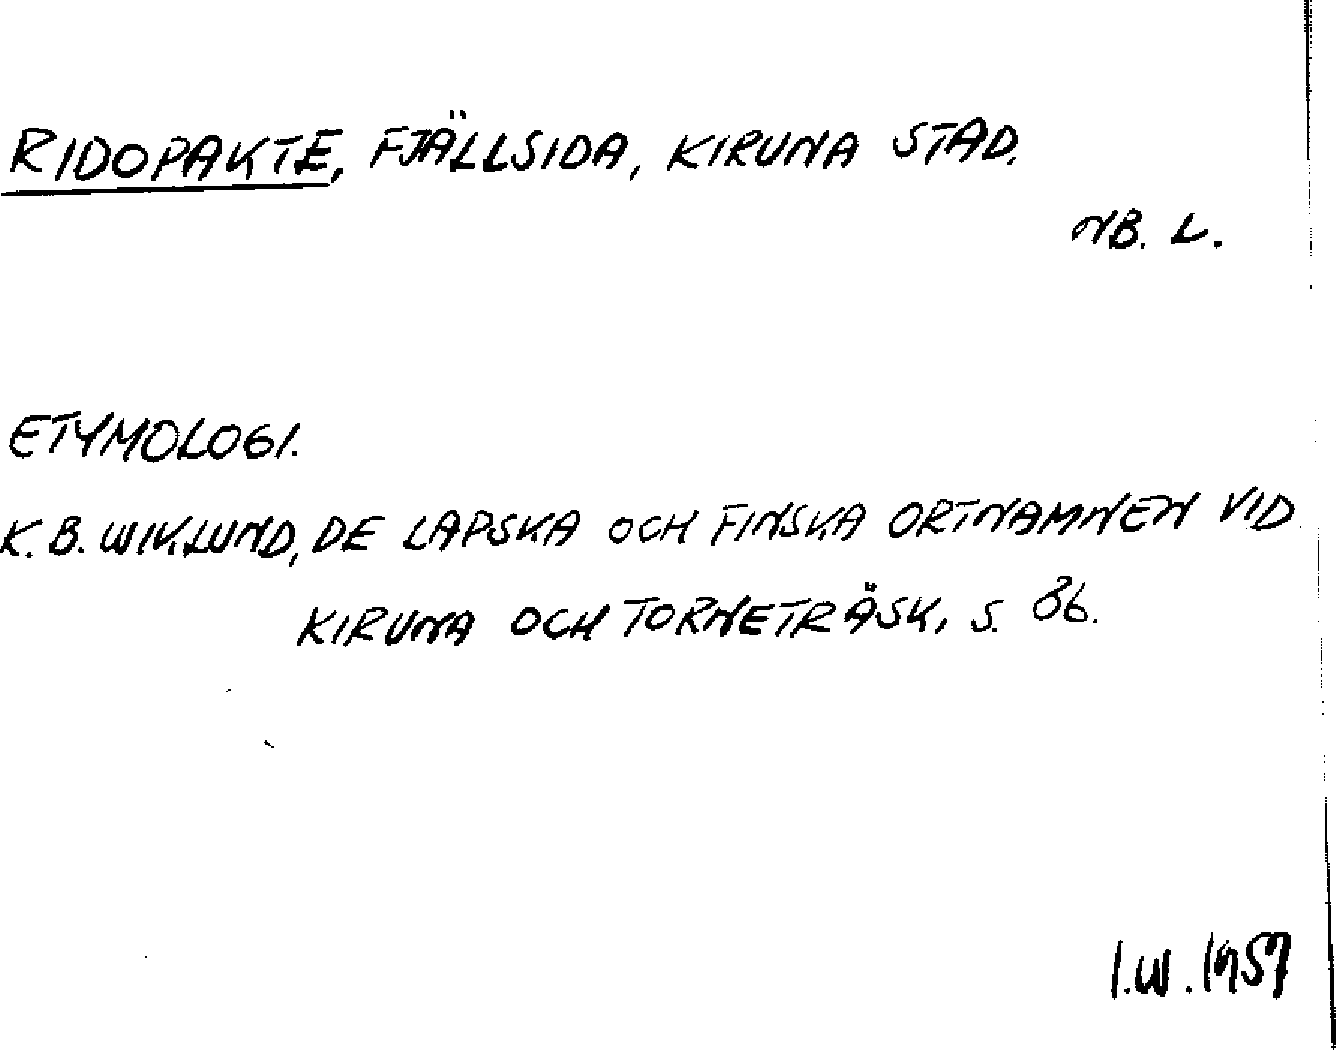 RIDOPAKTE, FJÄLLSIDA, KIRUNA STAD.
NB. L.
ETYMOLOGI.
K. B. WIKLUND, DE LAPSKA OCH FINSKA ORTNAMNEN VID
KIRUNA OCH TORNETRÄSK, S. 86.
I.W. 1957